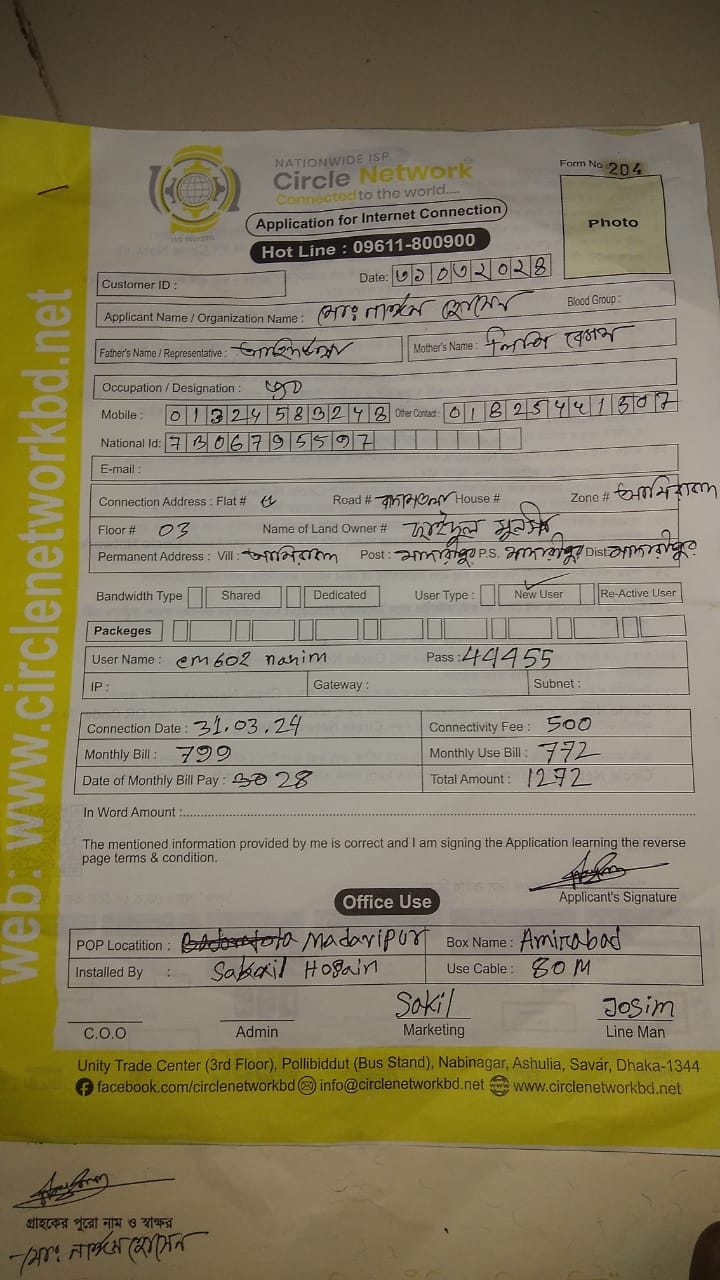 NATIONWIDE ISP
Circle Network
Connected to the world.....
Form No : 204
Application for Internet Connection
Photo
Hot Line : 09611-800900
Customer ID :
Date: ৩১ ০৩ ২০২৪
Applicant Name / Organization Name : মোঃ নাঈম হোসেন Blood Group :
Father's Name / Representative :
Mother's Name : লিপি বেগম
Occupation / Designation :
Mobile : Other Contact : 01825441307
National Id: 7306795597
E-mail :
Connection Address : Flat # Road # House # Zone # আমিরাবাদ
Floor # 03 Name of Land Owner # মুনসি
Permanent Address : Vill : আমিরাবাদ Post : মাদারীপুর P.S. মাদারীপুর Dist মাদারীপুর
Bandwidth Type Shared Dedicated User Type : New User Re-Active User
Packeges
User Name : em602 nahim Pass : 44455
IP : Gateway : Subnet :
Connection Date : 31.03.24 Connectivity Fee : 500
Monthly Bill : 799 Monthly Use Bill : 772
Date of Monthly Bill Pay : 28 Total Amount : 1272
In Word Amount :
The mentioned information provided by me is correct and I am signing the Application learning the reverse
page terms & condition.
Applicant's Signature
Office Use
POP Locatition : Madaripur Box Name : Amirabad
Installed By : Hosain Use Cable : 80 M
Sakil Josim
C.O.O Admin Marketing Line Man
Unity Trade Center (3rd Floor), Pollibiddut (Bus Stand), Nabinagar, Ashulia, Savar, Dhaka-1344
facebook.com/circlenetworkbd info@circlenetworkbd.net www.circlenetworkbd.net
web: www.circlenetworkbd.net
গ্রাহকের পুরো নাম ও স্বাক্ষর
মোঃ নাঈম হোসেন